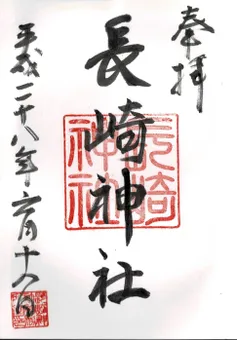 奉拝
長崎神社
長崎神社
平成二十八年六月十八日